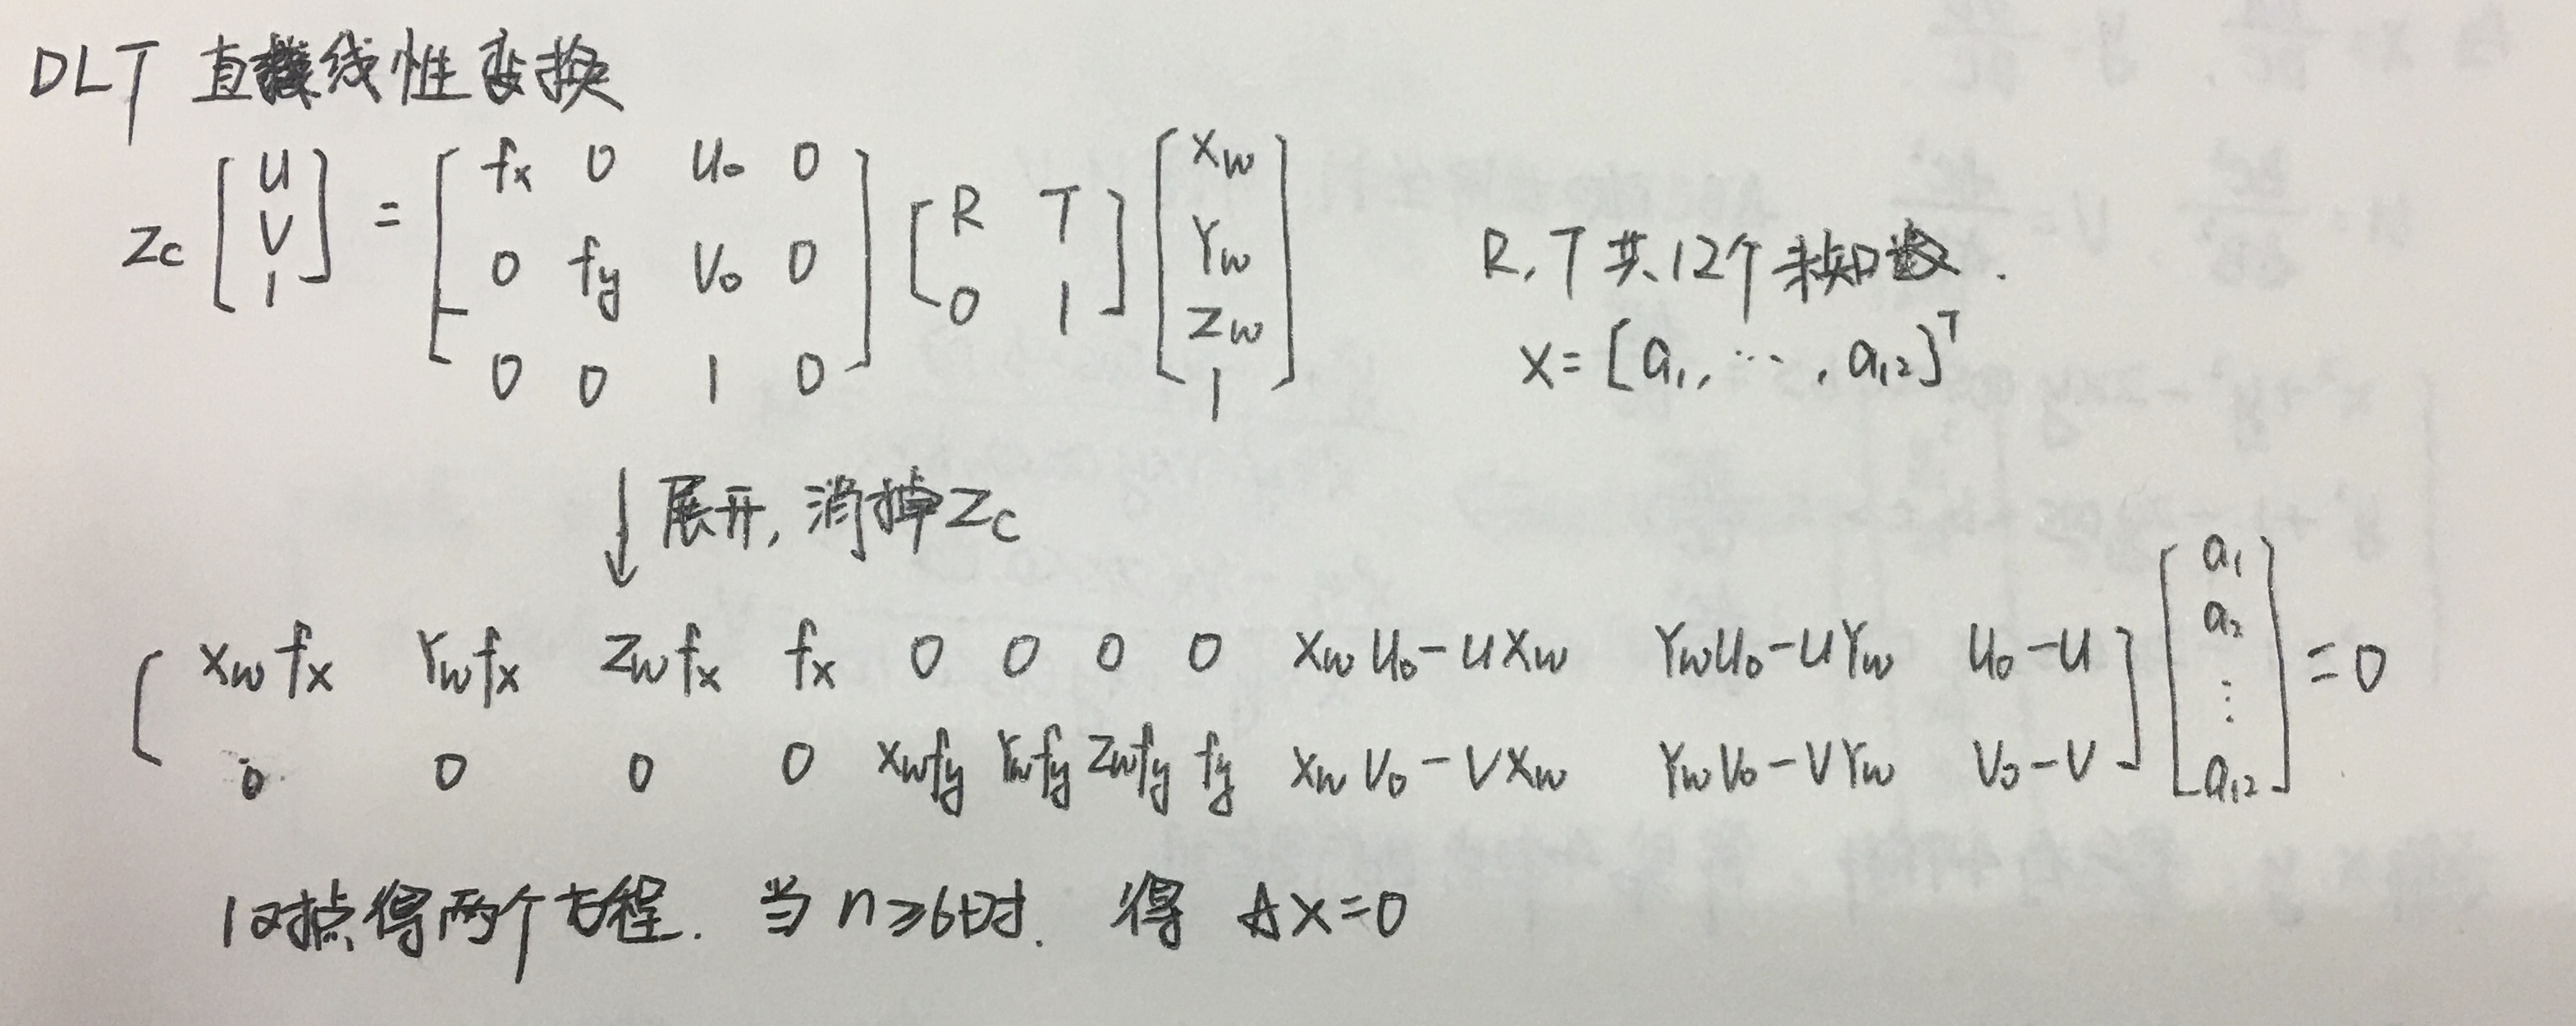 DLT 直接线性变换
Zc [U V 1] = [fx 0 U0 0 0 fy V0 0 0 0 1 0] [R T 0 1] [Xw Yw Zw 1]
R,T 共12个未知数.
X=[a1, ⋯, a12]^T
↓ 展开, 消掉Zc
[Xwfx Ywfx Zwfx fx 0 0 0 0 XwU0-UXw YwU0-UYw U0-U
0 0 0 0 Xwfy Ywfy Zwfy fy XwV0-VXw YwV0-VYw V0-V] [a1 a2 ⋮ a12] =0
1对点得两个方程. 当 n≥6时. 得 AX=0